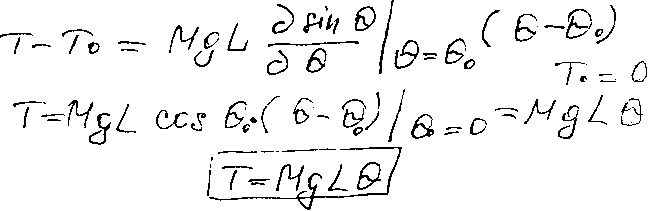 T - T₀ = MgL ∂ sin θ / ∂ θ |θ=θ₀ (θ-θ₀)
T₀ = 0
T = MgL cos θ₀ (θ - θ₀) |θ₀=0 = MgLθ
T = MgLθ